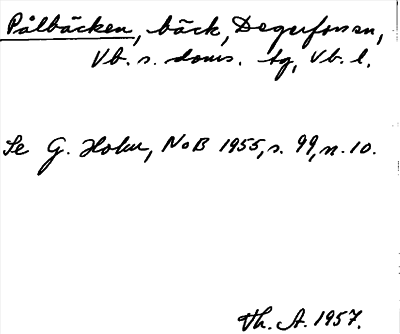 Pålbäcken, bäck, Degerforsen,
Vb. s. doms. tg, Vb. l.
Se G. Holm, NoB 1955, s. 99, n. 10.
Th. A. 1957.